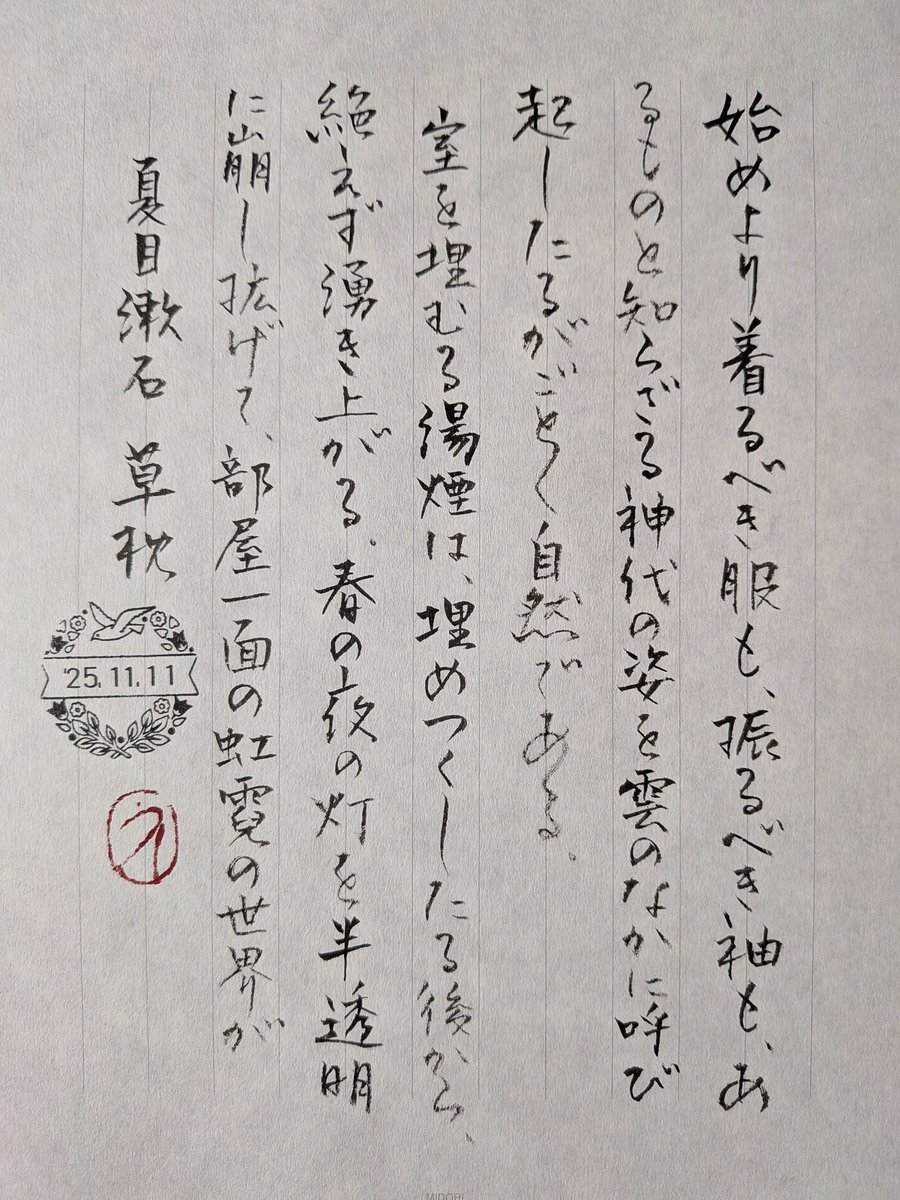 始めより着るべき服も、振るべき袖も、あ
るものと知らざる神代の姿を雲のなかに呼び
起したるがごとく自然である。
室を埋むる湯煙は、埋めつくしたる後から、
絶えず湧き上がる。春の夜の灯を半透明
に崩し拡げて、部屋一面の虹霓の世界が
夏目漱石 草枕
'25.11.11
MIDORI